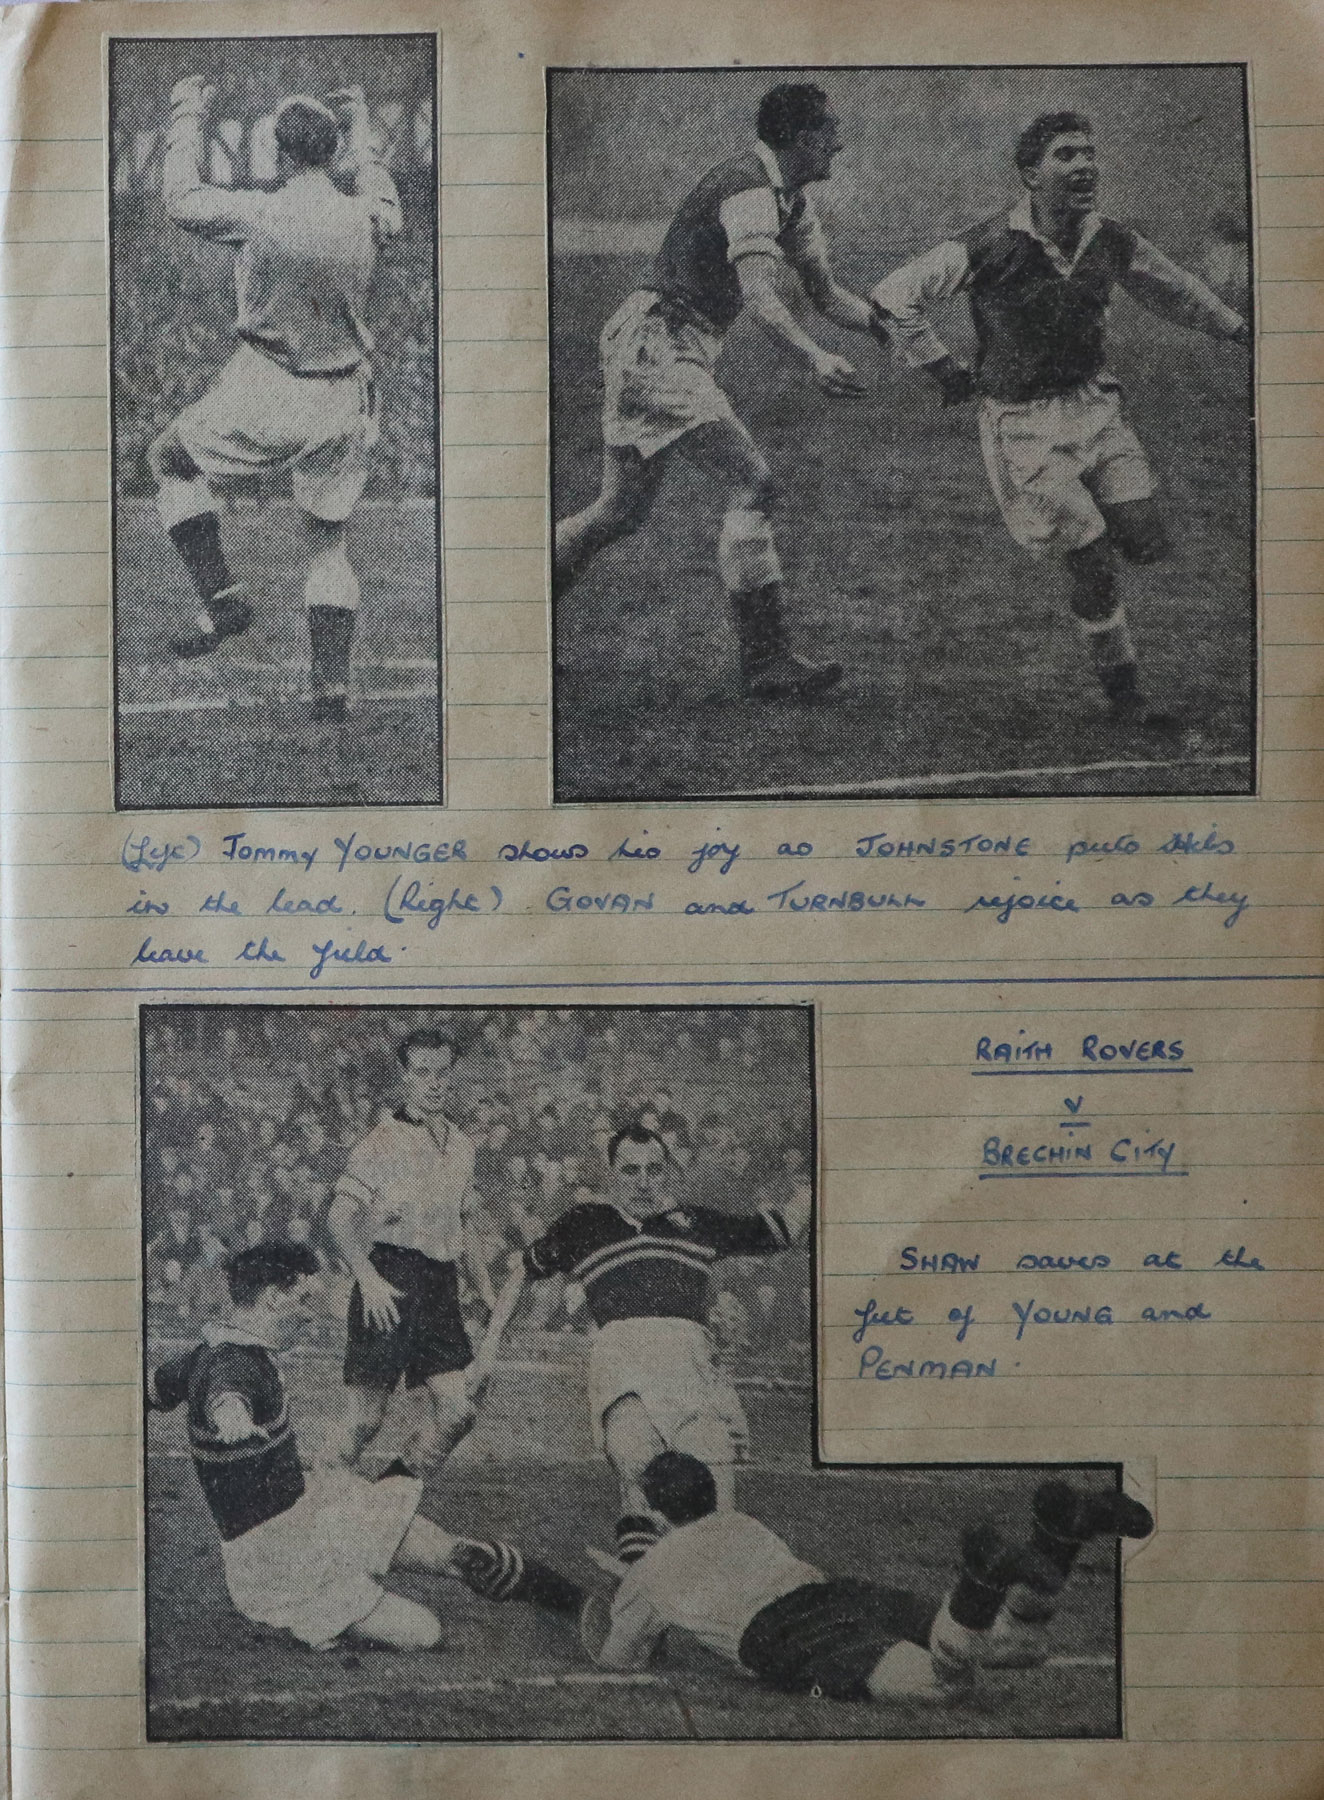 (Left) Tommy YOUNGER shows his joy as JOHNSTONE puts Hibs
in the lead. (Right) GOVAN and TURNBULL rejoice as they
leave the field.
RAITH ROVERS
v
BRECHIN CITY
SHAW saves at the
feet of YOUNG and
PENMAN.